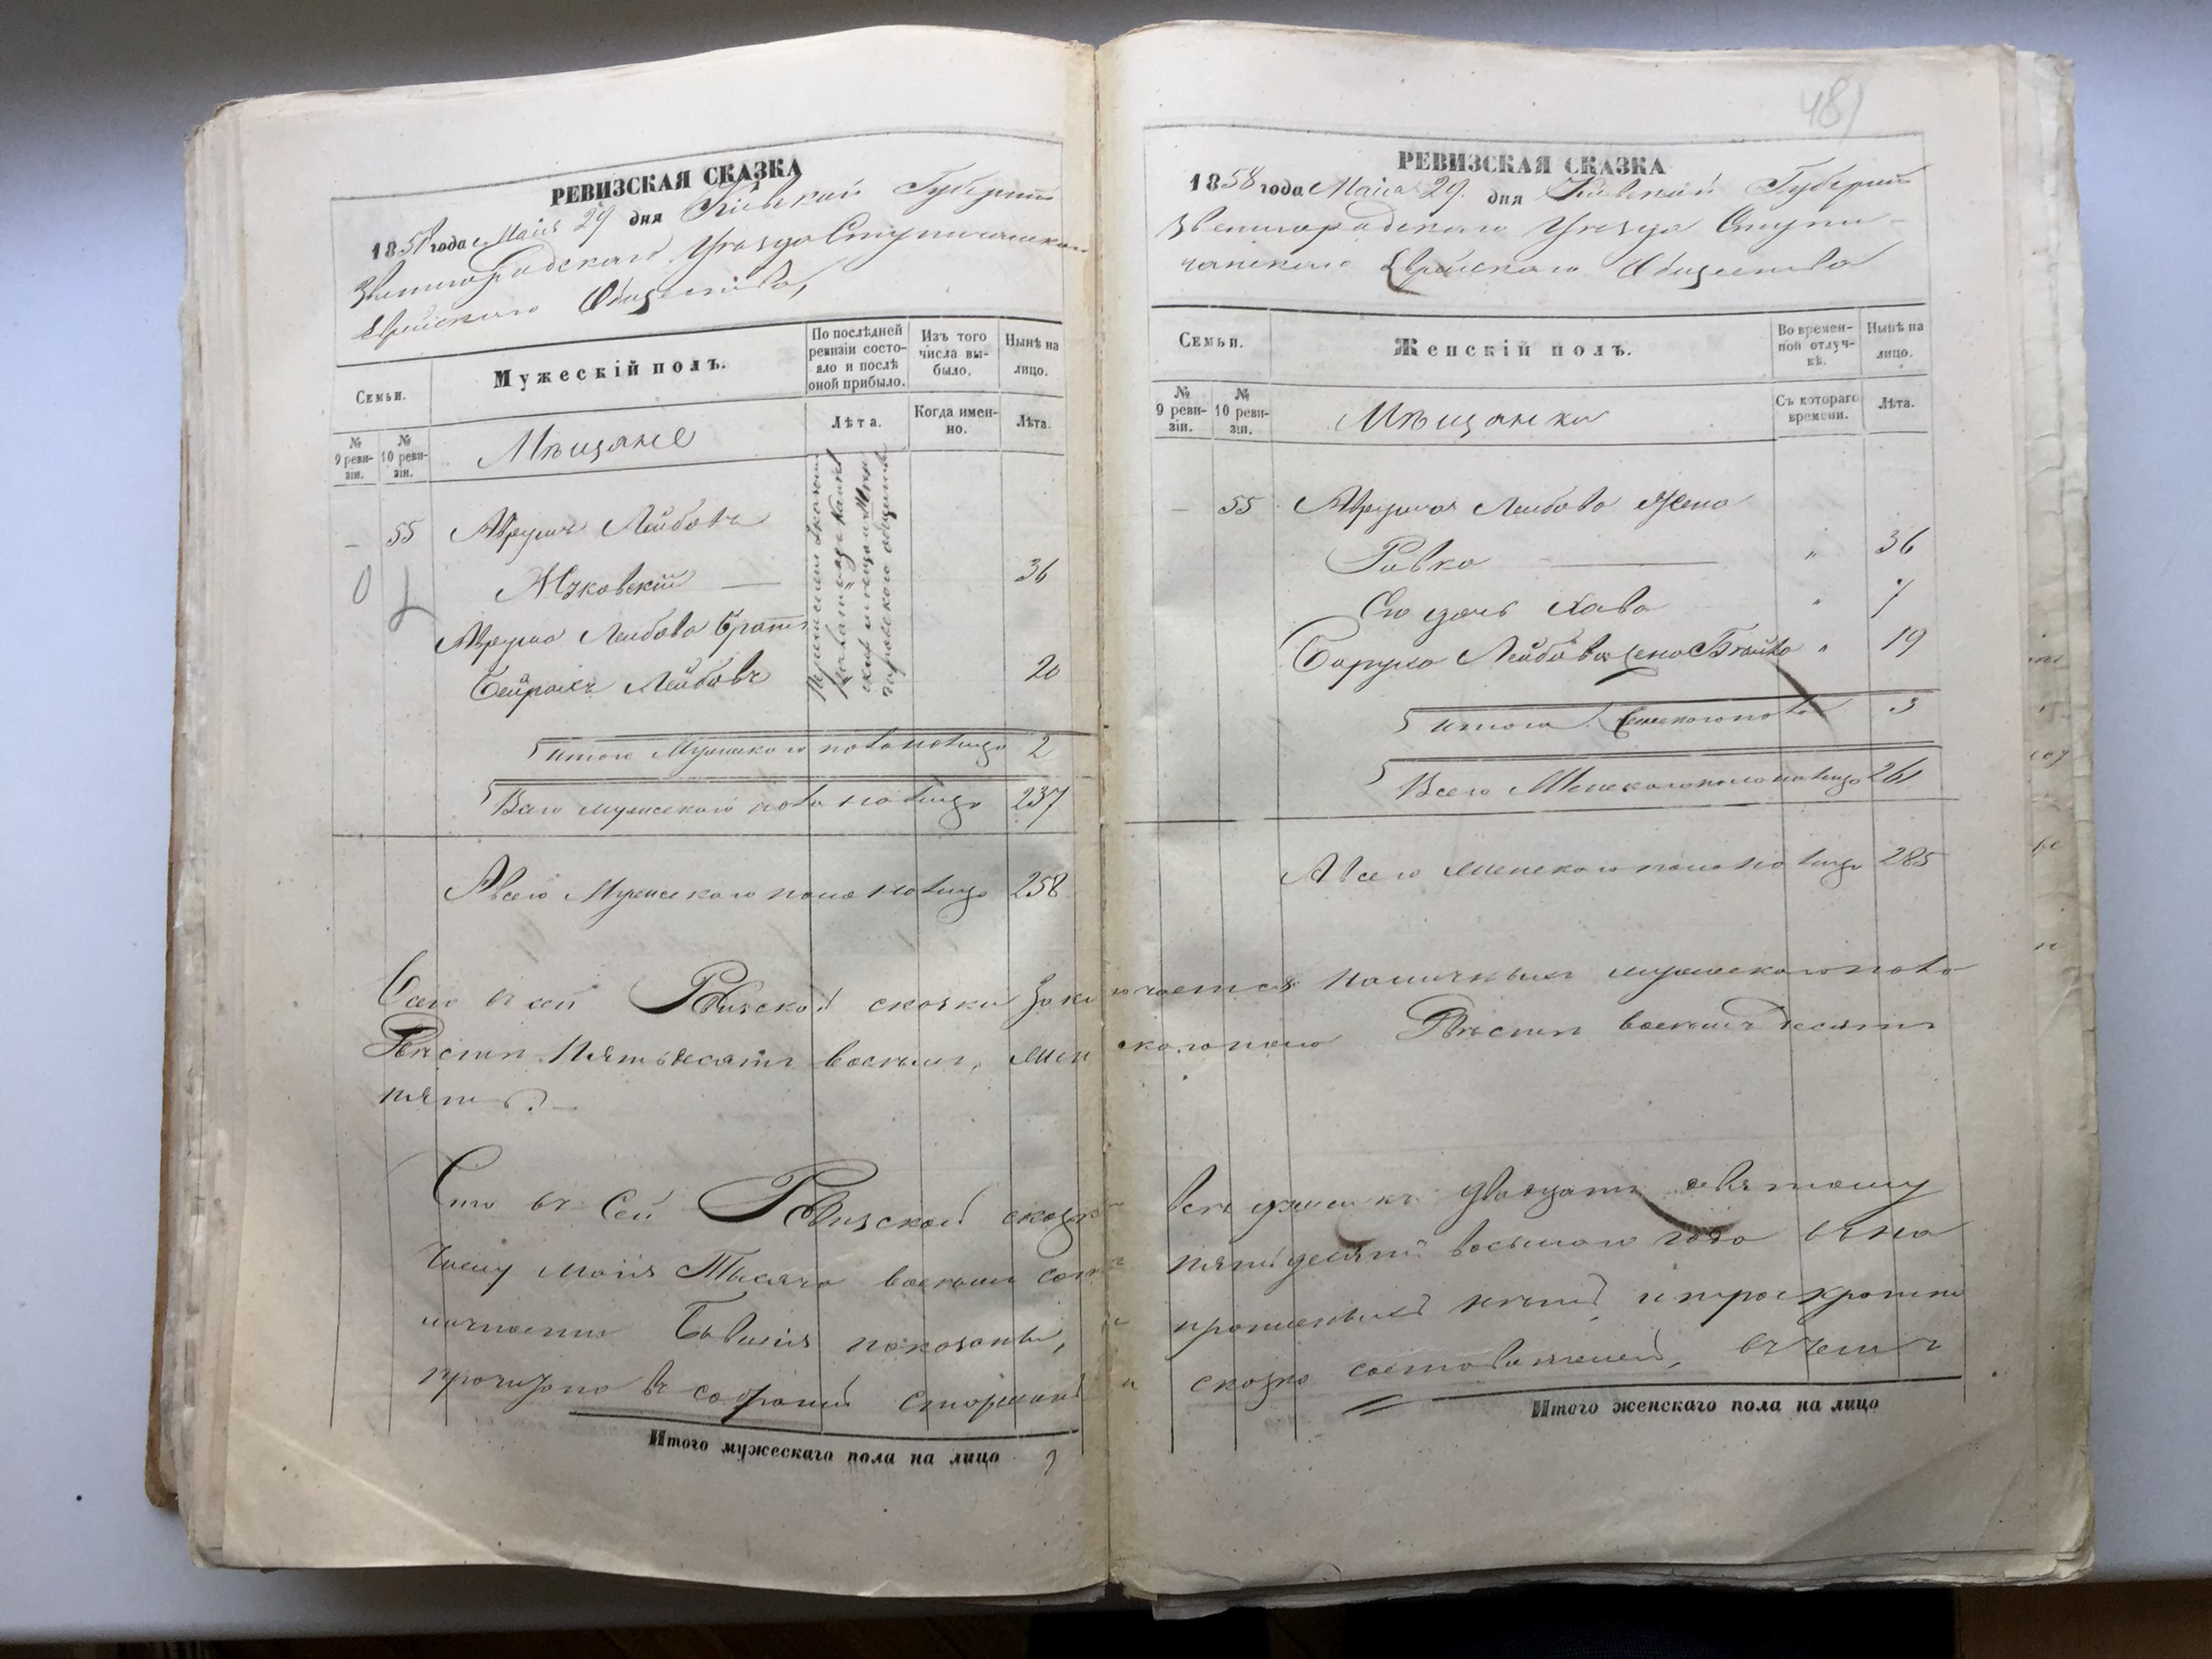 РЕВИЗСКАЯ СКАЗКА
1858 года Маія 29 дня Кіевской Губерніи
Звенигородского Уезда Ступичанскаго
Еврейскаго Общества,
Семьи.
Мужескій полъ.
По послѣдней ревизіи состояло и послѣ оной прибыло.
Изъ того числа выбыло.
Нынѣ на лицо.
№ 9 ревизіи.
№ 10 ревизіи.
Мѣщане
Лѣта.
Когда именно.
Лѣта.
— 55 Аврумъ Лейбовъ
36
Аврума Лейбова братъ
Лейбовъ 20
Итого Мужескаго пола налицо 2
Всего мужескаго пола налицо 237
А всего Мужескаго пола налицо 258
481
РЕВИЗСКАЯ СКАЗКА
1858 года Маія 29. дня Кіевской Губерніи
Звенигородского Уезда Ступи-
чанского Еврейскаго Общества
Семьи.
Женскій полъ.
Во временной отлучкѣ.
Нынѣ на лицо.
№ 9 ревизіи.
№ 10 ревизіи.
Мѣщанки
Съ котораго времени.
Лѣта.
— 55 Аврума Лейбова Жена
Ривка — " 36
Его дочь Хава " 7
Лейбова жена " 19
Итого Женскаго пола 3
Всего Женскаго пола налицо 261
А всего Женскаго пола налицо 285
Всего въ сей Ревизской сказки заключается наличныхъ мужескаго пола
Двѣсти Пятьдесятъ восемь, женскаго пола Двѣсти восемьдесятъ
пять. —
Что въ Сей Ревизской сказкѣ всѣ души къ двадцать девятому
числу Маія Тысяча восемьсотъ пятьдесятъ восьмаго года на
личности бывшія показаны, и пропущенныхъ нѣтъ, и троекратно
прочитана въ собраніи и сказка составлена, въ чемъ
Итого мужескаго пола на лицо
Итого женскаго пола на лицо